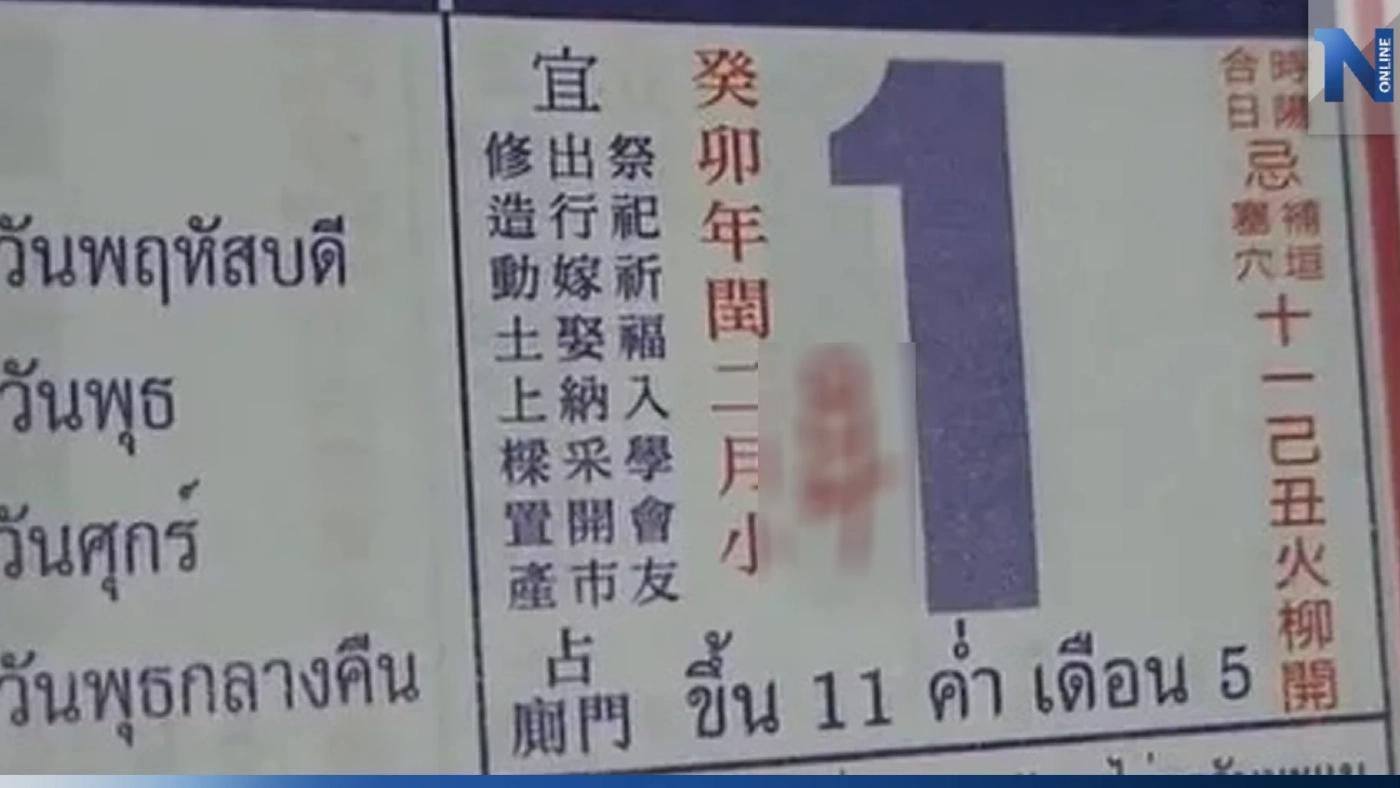 วันพฤหัสบดี
วันพุธ
วันศุกร์
วันพุธกลางคืน
宜
祭祀祈福入學會友
出行嫁娶納采開市
修造動土上樑置產
占
門廁
癸卯年閏二月小
1
ขึ้น 11 ค่ำ เดือน 5
時陽
合日
忌
補垣
塞穴
十一己丑火柳開
N ONLINE